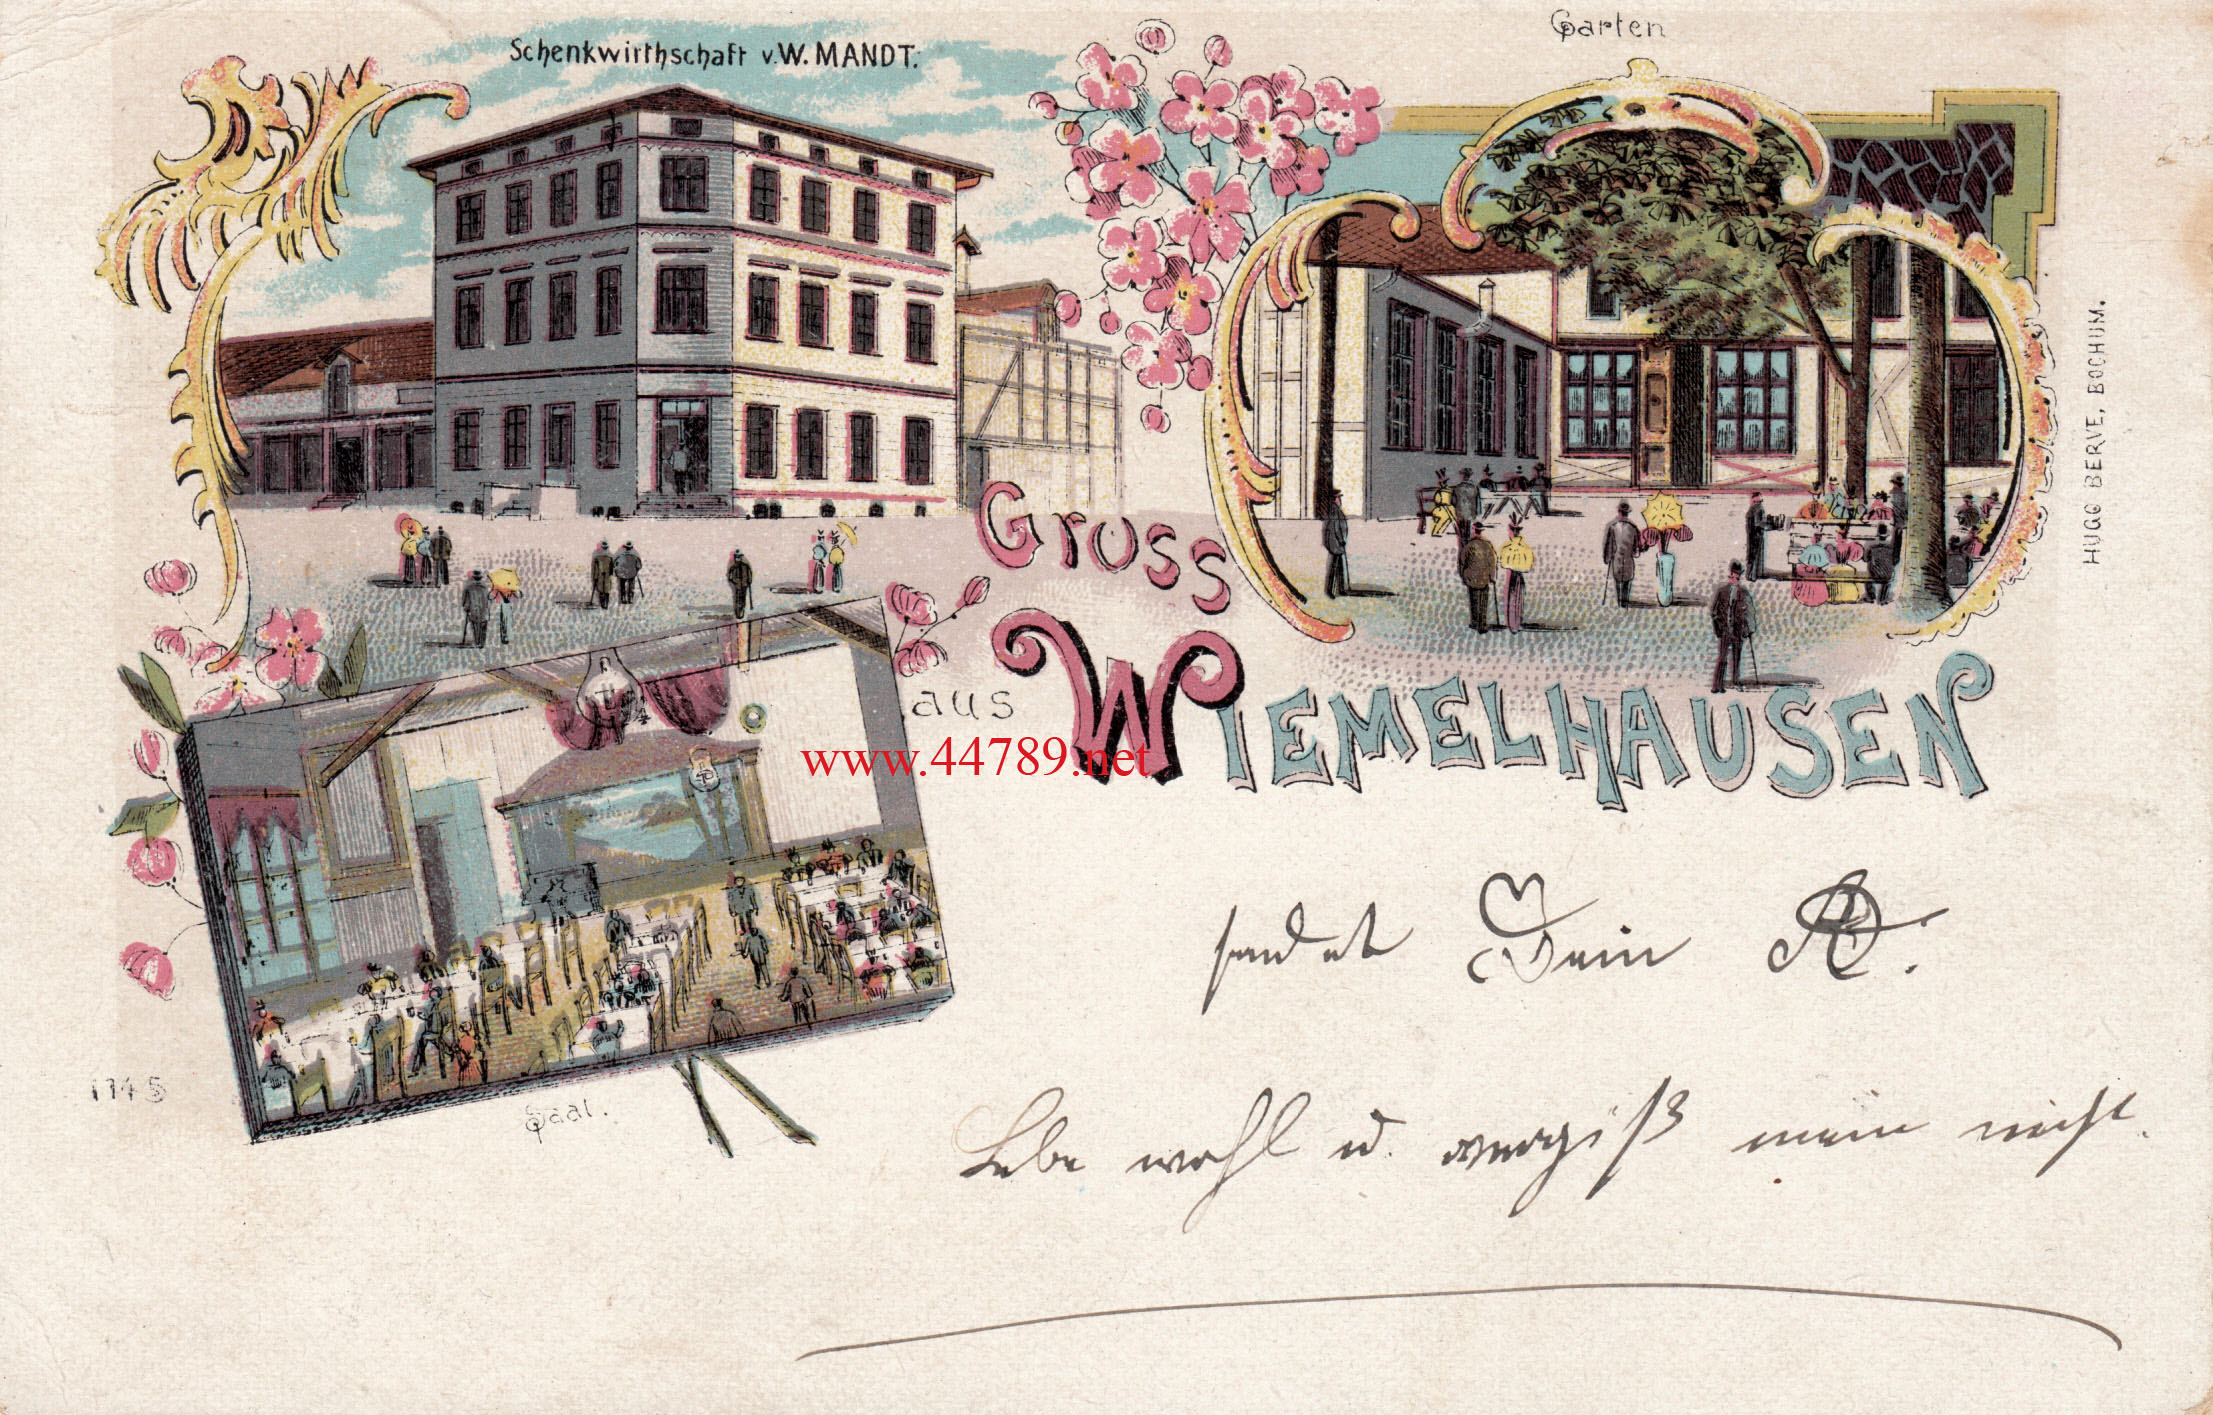 Schenkwirthschaft v. W. MANDT.
Garten
HUGO BERVE, BOCHUM.
Gruss
aus WIEMELHAUSEN
www.44789.net
sendet Dein
Lebe wohl u. vergiß mein nicht.
1745
Saal.